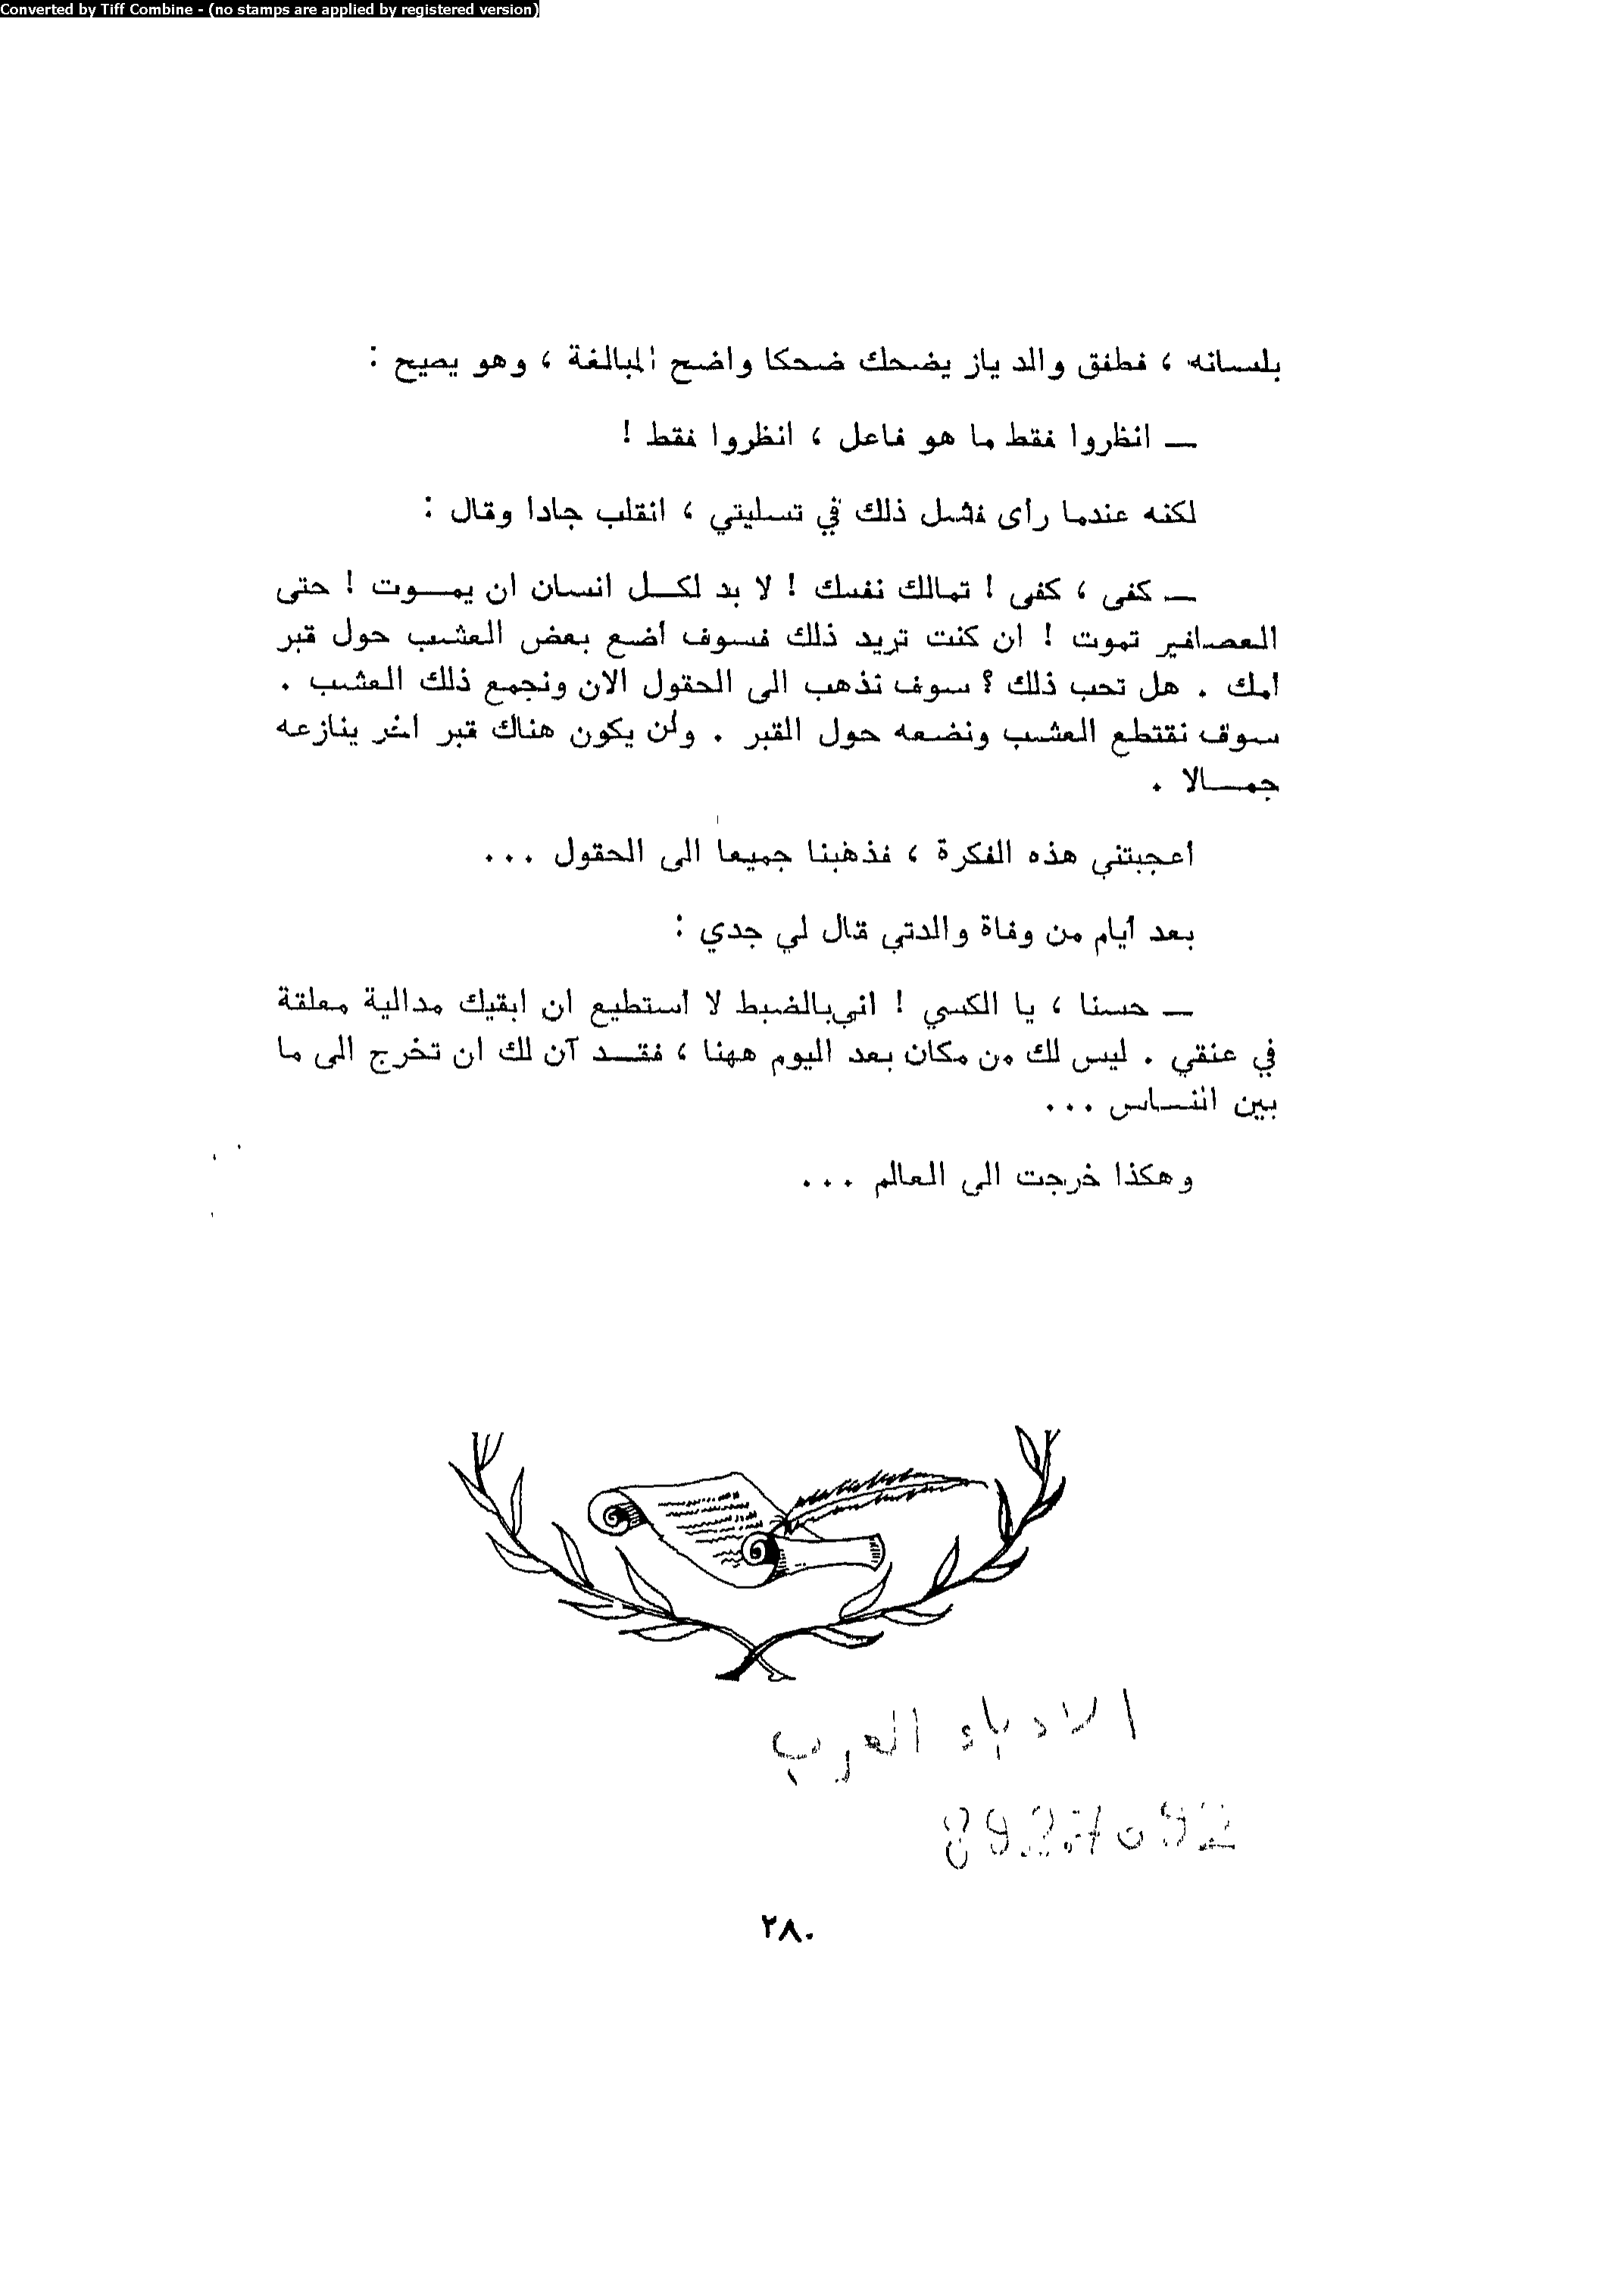 Converted by Tiff Combine - (no stamps are applied by registered version)
بلسانه ، فطفق والد ياز يضحك ضحكا واضح المبالغة ، وهو يصيح :
— انظروا فقط ما هو فاعل ، انظروا فقط !
لكنه عندما رأى فشل ذلك في تسليتي ، انقلب جادا وقال :
— كفى ، كفى ! تمالك نفسك ! لا بد لكـل انسان ان يمـوت ! حتى
العصافير تموت ! ان كنت تريد ذلك فسوف أضع بعض العشب حول قبر
امك . هل تحب ذلك ؟ سوف نذهب الى الحقول الان ونجمع ذلك العشب .
سوف نقتطع العشب ونضعه حول القبر . ولن يكون هناك قبر اخر ينازعه
جمـالا .
أعجبتني هذه الفكرة ، فذهبنا جميعا الى الحقول ...
بعد أيام من وفاة والدتي قال لي جدي :
— حسنا ، يا الكسي ! اني بالضبط لا أستطيع ان ابقيك مدالية معلقة
في عنقي . ليس لك من مكان بعد اليوم ههنا ، فقـد آن لك ان تخرج الى ما
بين النـاس ...
وهكذا خرجت الى العالم ...
الادباء العرب
٢٨٠